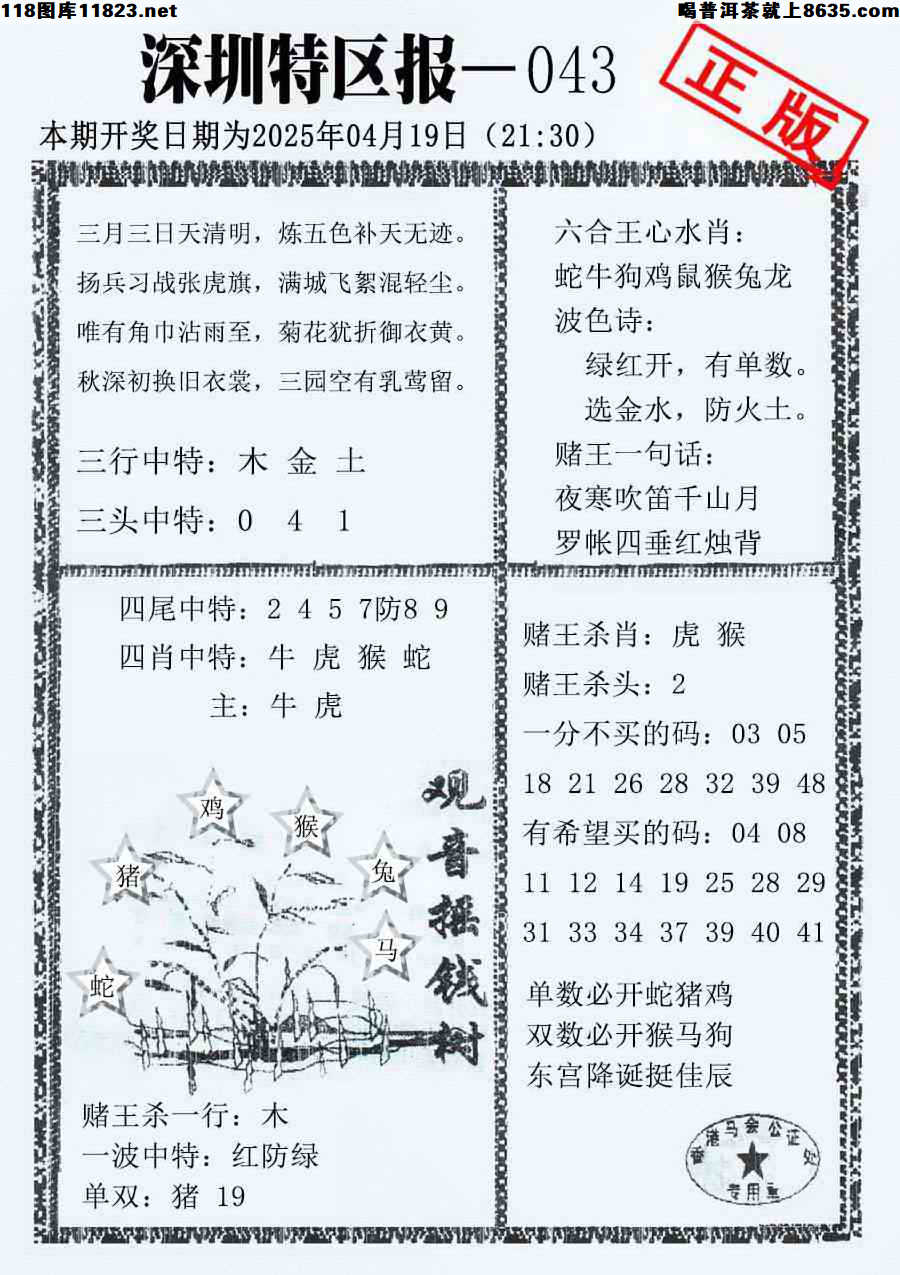 118图库11823.net
喝普洱茶就上8635.com
深圳特区报—043
正版
本期开奖日期为2025年04月19日（21:30）
三月三日天清明，炼五色补天无迹。
扬兵习战张虎旗，满城飞絮混轻尘。
唯有角巾沾雨至，菊花犹折御衣黄。
秋深初换旧衣裳，三园空有乳莺留。
三行中特：木 金 土
三头中特：0 4 1
六合王心水肖：
蛇牛狗鸡鼠猴兔龙
波色诗：
绿红开，有单数。
选金水，防火土。
赌王一句话：
夜寒吹笛千山月
罗帐四垂红烛背
四尾中特：2 4 5 7防8 9
四肖中特：牛 虎 猴 蛇
主：牛 虎
观音摇钱树
鸡
猴
猪
兔
马
蛇
赌王杀一行：木
一波中特：红防绿
单双：猪 19
赌王杀肖：虎 猴
赌王杀头：2
一分不买的码：03 05
18 21 26 28 32 39 48
有希望买的码：04 08
11 12 14 19 25 28 29
31 33 34 37 39 40 41
单数必开蛇猪鸡
双数必开猴马狗
东宫降诞挺佳辰
香港马会公证处
专用章